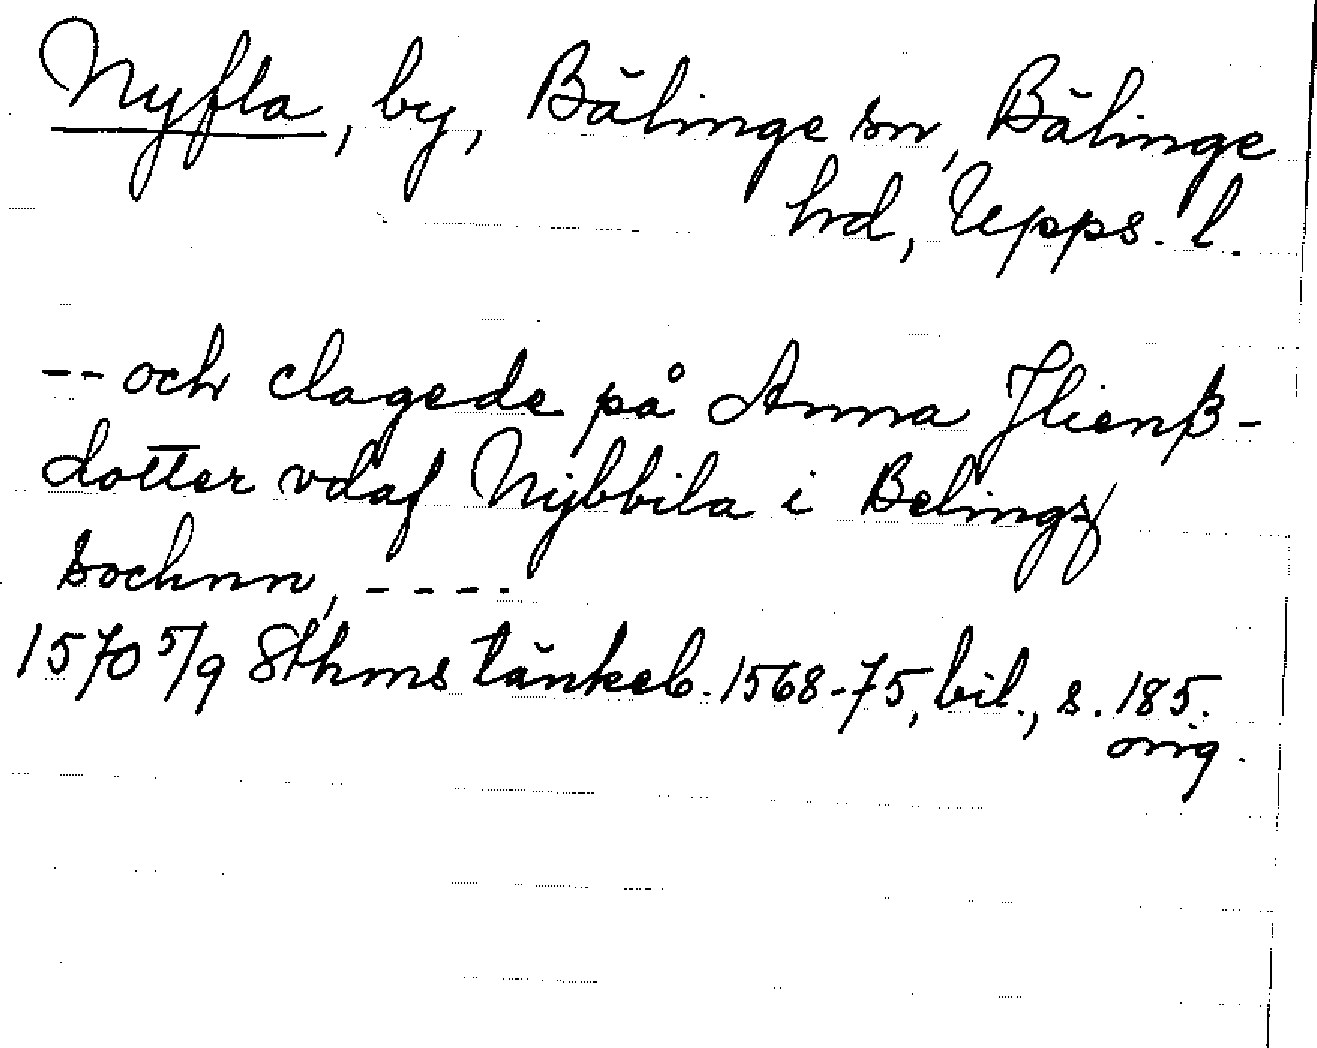 Nyfla, by, Bälinge sn, Bälinge
hrd, Upps. l.
-- och clagede på Anna Jlienß-
dotter vdaf Nÿbbila i Belingz
sochnn, ----
1570 5/9 Sthms tänkeb. 1568-75, bil., s. 185.
orig.